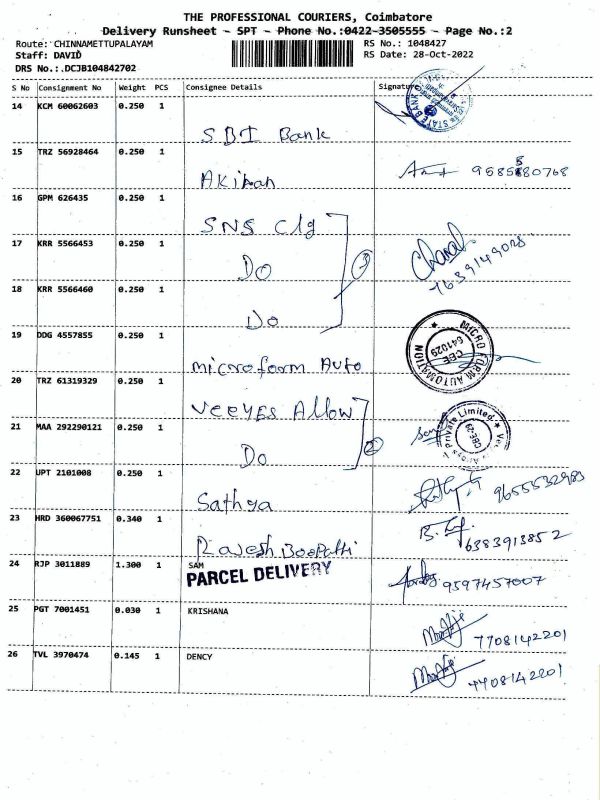 THE PROFESSIONAL COURIERS, Coimbatore
Delivery Runsheet - SPT - Phone No.:0422-3505555 - Page No.:2
Route: CHINNAMETTUPALAYAM RS No.: 1048427
Staff: DAVID RS Date: 28-Oct-2022
DRS No.:.DCJB104842702
S No Consignment No Weight PCS Consignee Details Signature
14 KCM 60062603 0.250 1 SBI Bank
15 TRZ 56928464 0.250 1 Akilan
16 GPM 626435 0.250 1 SNS Clg
17 KRR 5566453 0.250 1 Do 3 7639149028
18 KRR 5566460 0.250 1 Do
19 DDG 4557855 0.250 1 microform Auto MICRO FORM AUTOMATION CBE 641029
20 TRZ 61319329 0.250 1 VEEYES Allow
21 MAA 292290121 0.250 1 Do 2 Private Limited
22 UPT 2101008 0.250 1 Sathya 9655532983
23 HRD 360067751 0.340 1 Rajesh Boopathi 6383913852
24 RJP 3011889 1.300 1 SAM 9597457007
PARCEL DELIVERY
25 PGT 7001451 0.030 1 KRISHANA 7708142201
26 TVL 3970474 0.145 1 DENCY 7708142201